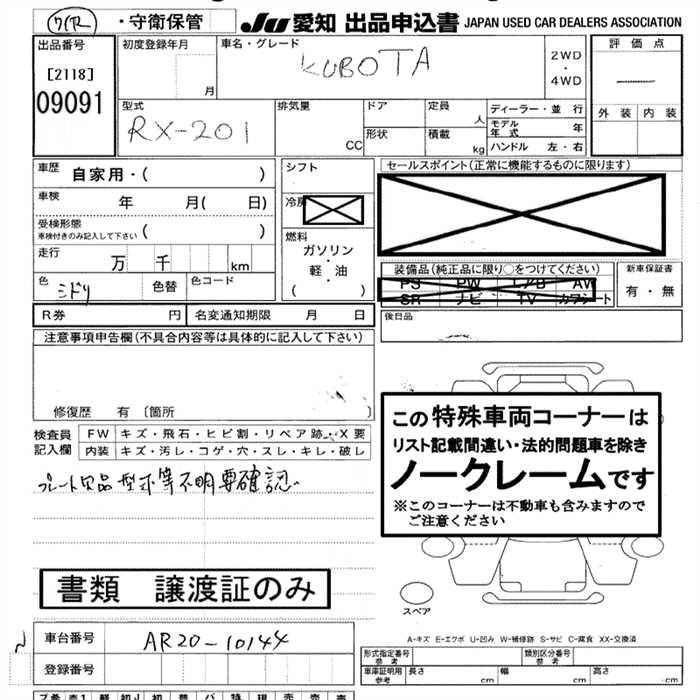 7(R)・守衛保管 JU 愛知 出品申込書 JAPAN USED CAR DEALERS ASSOCIATION
出品番号
[2118]
09091
初度登録年月
月
車名・グレード
KUBOTA
2WD
・
4WD
評価点
外装 内装
型式
RX-201
排気量
CC
ドア
形状
定員
人
積載
kg
ディーラー・並 行
モデル年式 年
ハンドル 左・右
車歴 自家用・( )
車検 年 月( 日)
受検形態
車検付きのみ記入して下さい ( )
走行 万 千 km
色 ミドリ 色替 色コード
シフト
冷房
燃料
ガソリン
・
軽・油
( )
セールスポイント(正常に機能するものに限ります)
装備品(純正品に限り○をつけてください)
PS PW エアB AW
SR ナビ TV カワシート
新車保証書
有・無
R券 円 名変通知期限 月 日
後日品
注意事項申告欄(不具合内容等は具体的に記入して下さい)
修復歴 有〔箇所 〕
検査員
記入欄
FW キズ・飛石・ヒビ割・リペア跡・X要
内装 キズ・汚レ・コゲ・穴・スレ・キレ・破レ
プレート欠品 型式等不明要確認
この特殊車両コーナーは
リスト記載間違い・法的問題車を除き
ノークレームです
※このコーナーは不動車も含みますので
ご注意ください
書類 譲渡証のみ
スペア
A-キズ E-エクボ U-凹み W-補修跡 S-サビ C-腐食 XX-交換済
車台番号 AR20-10144
登録番号
形式指定番号
参考
類別区分番号
参考
車庫証明用
参考
長さ cm 幅 cm 高さ cm